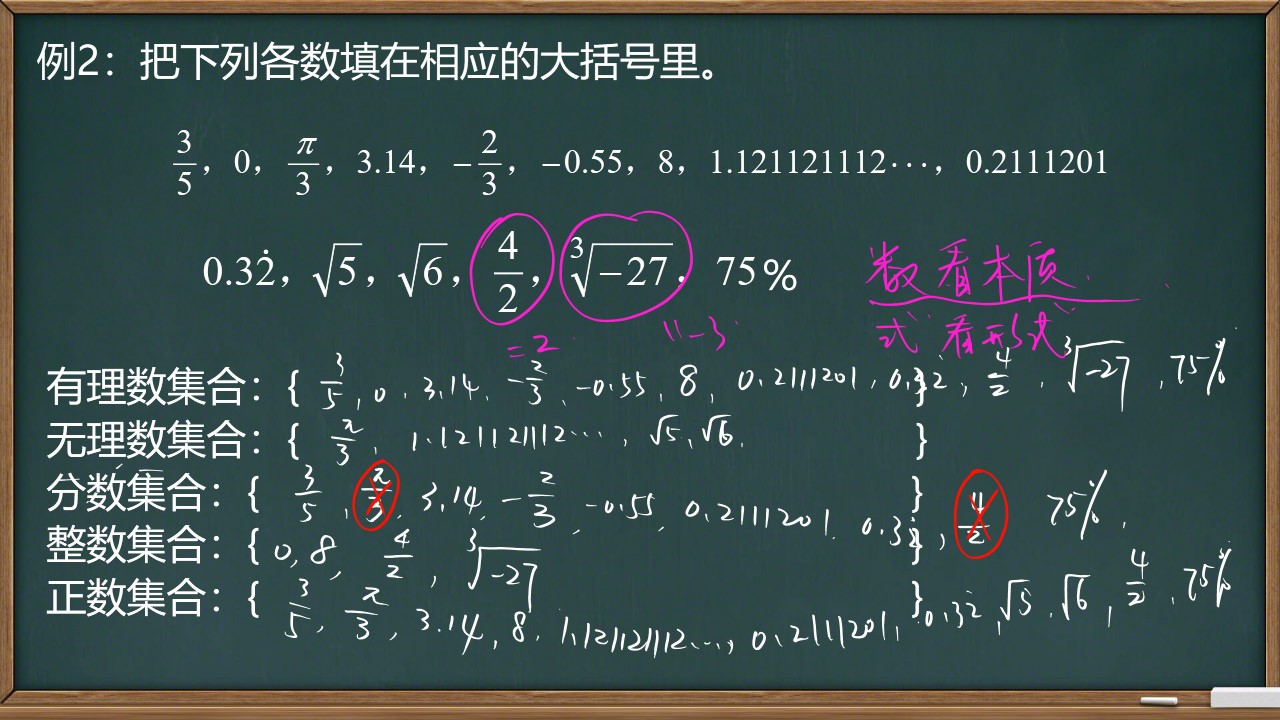 例2：把下列各数填在相应的大括号里。
3/5，0，π/3，3.14，−2/3，−0.55，8，1.121121112⋯，0.2111201
0.32̇，√5，√6，4/2，∛−27，75%
数看本质.
=2 "−3 式"看形式"
有理数集合：{ 3/5, 0, 3.14, −2/3, −0.55, 8, 0.2111201, 0.32̇ }, 4/2, ∛−27, 75%
无理数集合：{ π/3, 1.121121112⋯, √5, √6. }
分数集合：{ 3/5, π/3, 3.14, −2/3, −0.55, 0.2111201, 0.32̇ }, 4/2 75%,
整数集合：{ 0, 8, 4/2, ∛−27 }
正数集合：{ 3/5, π/3, 3.14, 8, 1.121121112⋯, 0.2111201, }, 0.32̇, √5, √6, 4/2, 75%